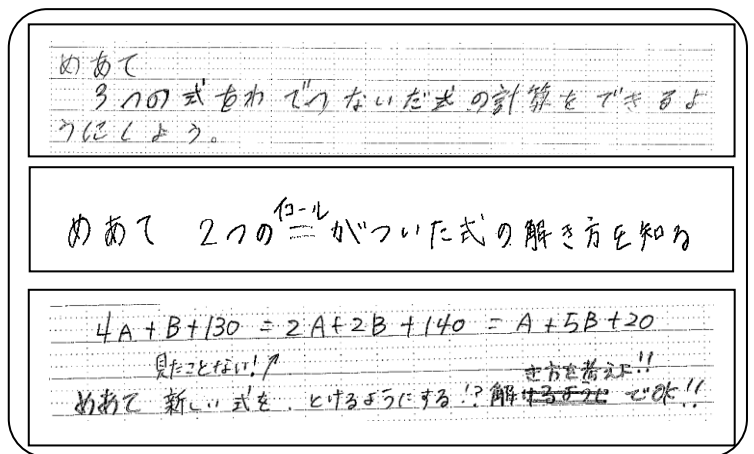 めあて
3つの式をわでつないだ式の計算をできるよ
うにしよう。
イコール
めあて 2つの=がついた式の解き方を知る
4A+B+130=2A+2B+140=A+5B+20
見たことない!↗
き方を考えよ!!
めあて 新しい式を、とけるようにする!?解けるように でOK!!